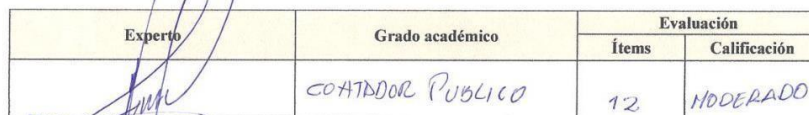 Experto Grado académico Evaluación
Ítems Calificación
COHTADOR PUBLICO 12 MODERADO